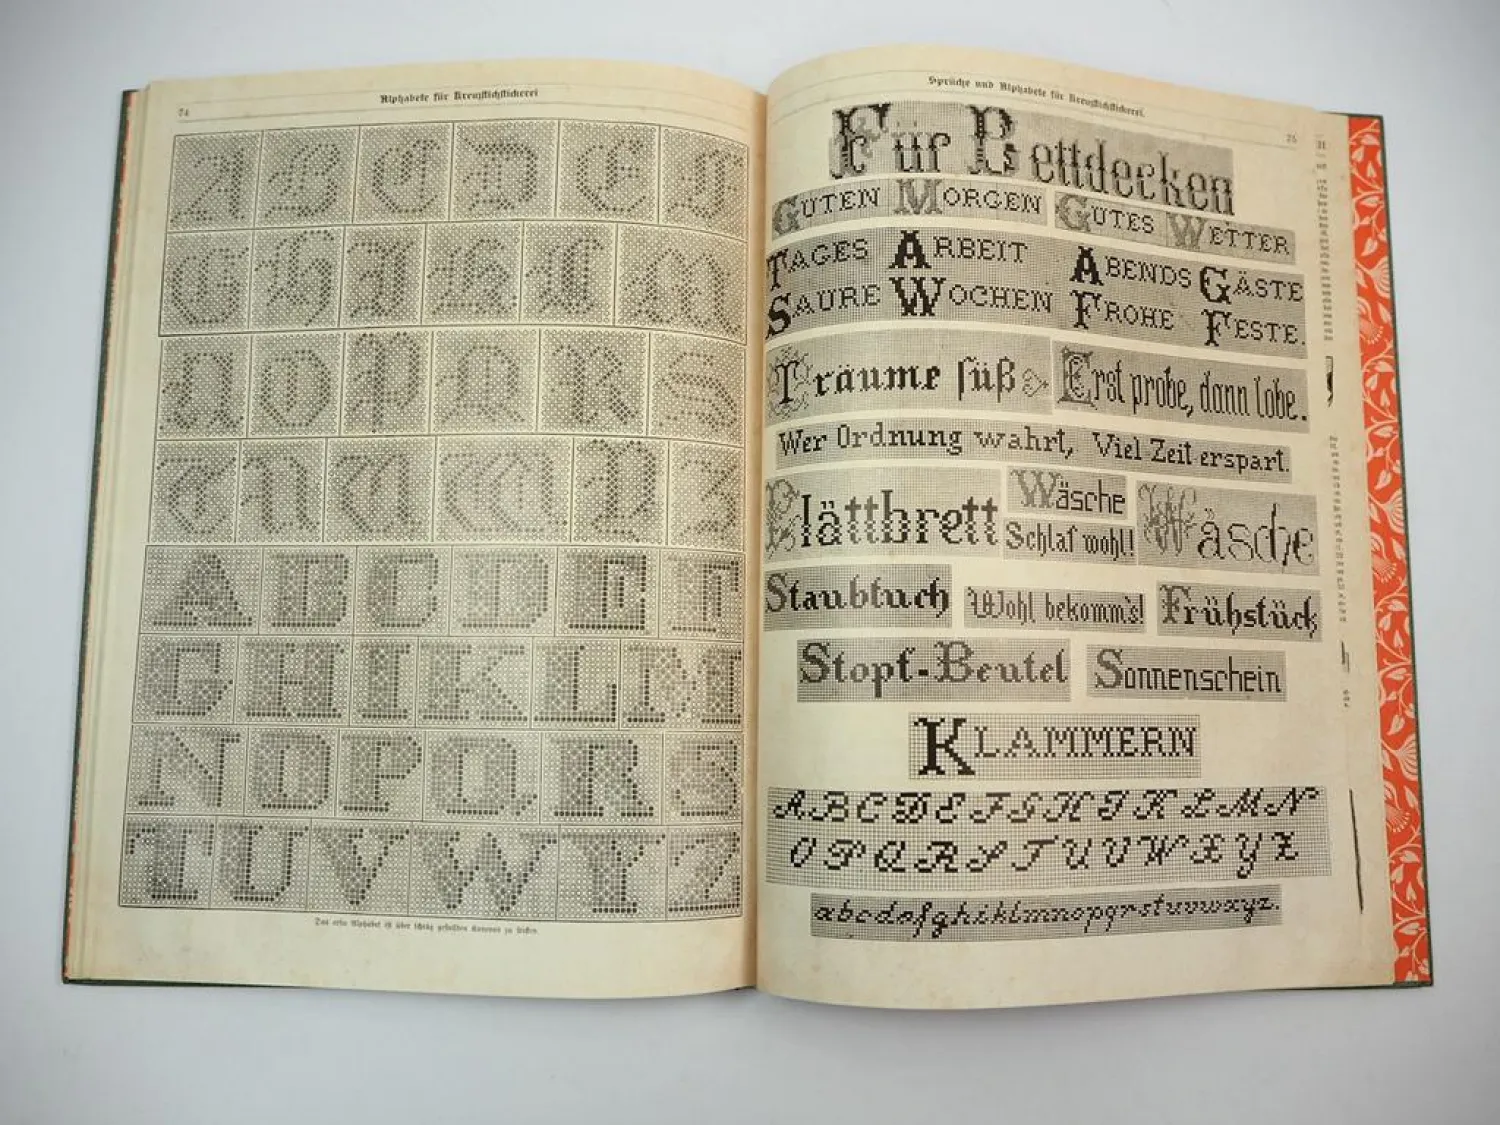 74
Alphabete für Kreuzstichstickerei
A B C D E F
G H I K L M
N O P Q R S
T U V W Y Z
A B C D E F
G H I K L M
N O P Q R S
T U V W Y Z
Das erste Alphabet ist über schräg gestellten Kanevas zu sticken.
Sprüche und Alphabete für Kreuzstichstickerei.
75
Für Bettdecken
GUTEN MORGEN GUTES WETTER
TAGES ARBEIT ABENDS GÄSTE
SAURE WOCHEN FROHE FESTE.
Träume süß Erst probe, dann lobe.
Wer Ordnung wahrt, Viel Zeit erspart.
Plättbrett Wäsche Schlaf wohl! Wäsche
Staubtuch Wohl bekomm's! Frühstück
Stopf-Beutel Sonnenschein
KLAMMERN
A B C D E F G H I K L M N
O P Q R S T U V W X Y Z
abcdefghiklmnopqrstuvwxyz.